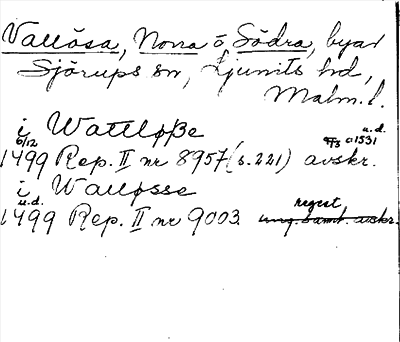 Vallösa, Norra o. Södra, byar
Sjörups sn, Ljunits hd,
Malm. l.
i Wattløße
6/12 u.d.
1499 Rep. II nr 8957 (s. 221) avskr. a 1531
i Walløsse
u.d. regest
1499 Rep. II nr 9003. ung. samt. avskr.